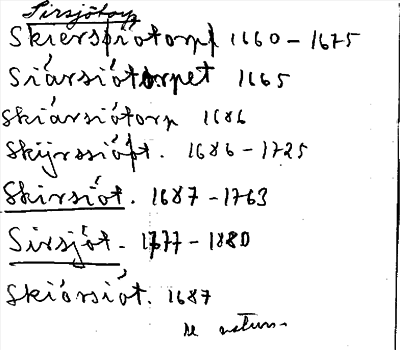 Sirsjötorp
Skierssiötorp 1660-1675
Siärsiötorpet 1665
Skiärsiötorp 1686
Skyrssiöt. 1686-1725
Skirsiöt. 1687-1763
Sirsjöt. 1777-1880
Skiörsiöt. 1687